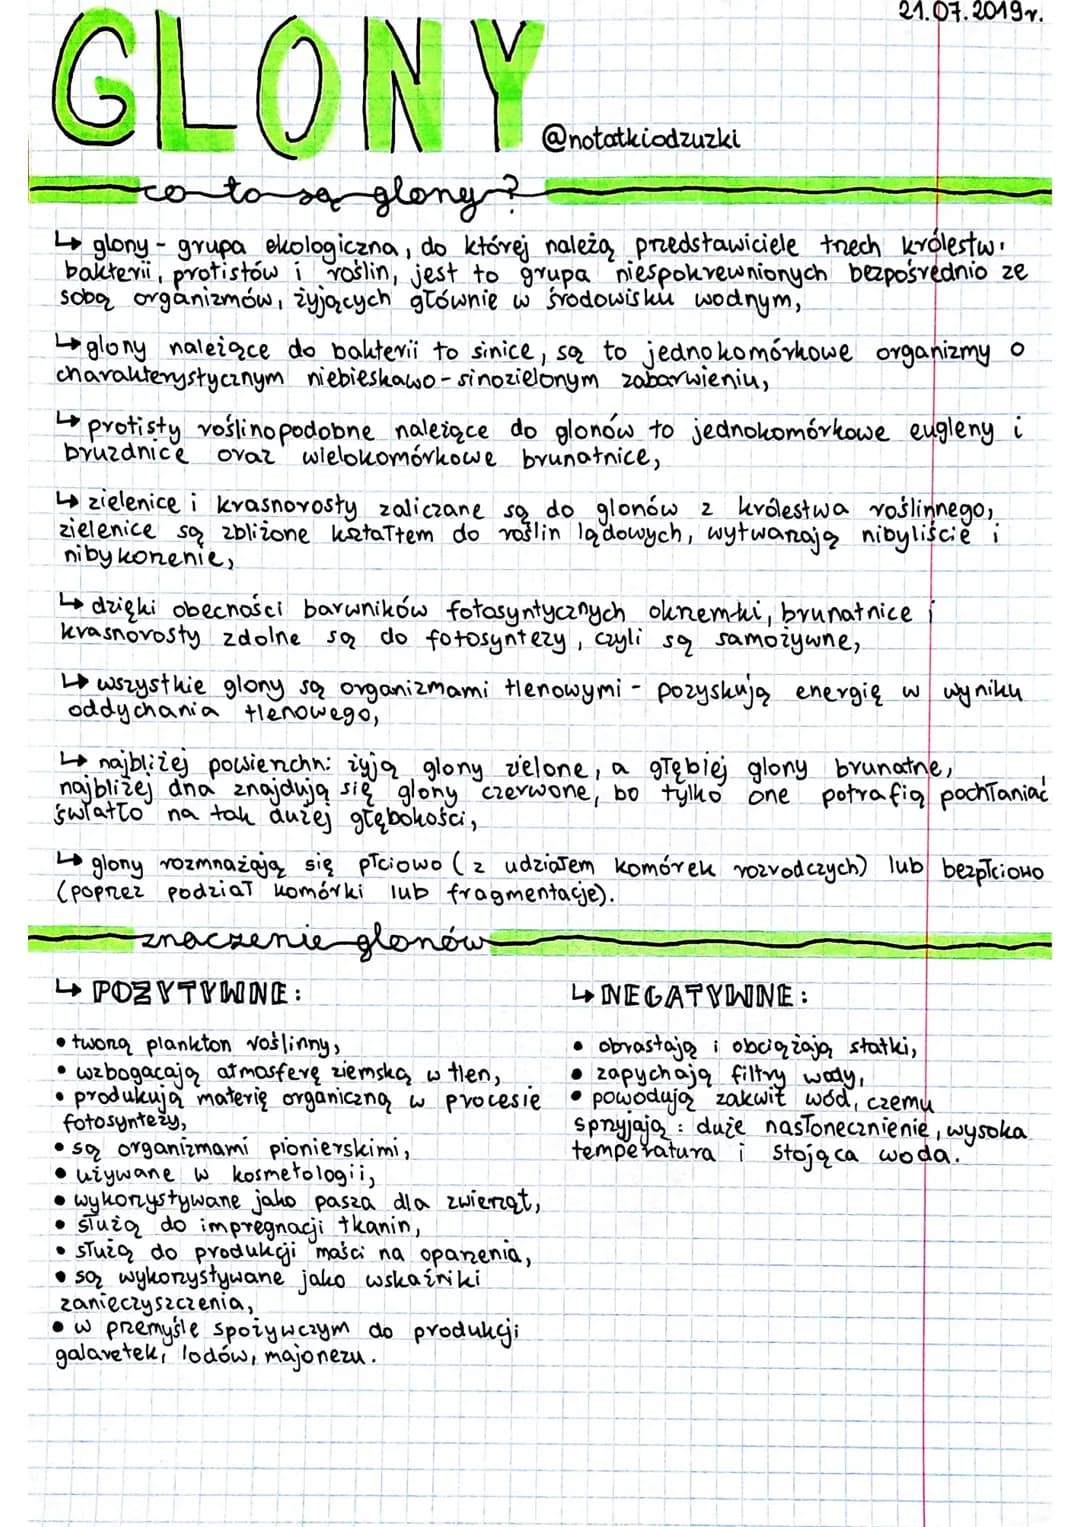 21.07.2019r.
GLONY
@notatkiodzuzki
co to są glony?
↳ glony - grupa ekologiczna, do której należą przedstawiciele trzech królestw:
bakterii, protistów i roślin, jest to grupa niespokrewnionych bezpośrednio ze
sobą organizmów, żyjących głównie w środowisku wodnym,
↳ glony należące do bakterii to sinice, są to jednokomórkowe organizmy o
charakterystycznym niebieskawo-sinozielonym zabarwieniu,
↳ protisty roślinopodobne należące do glonów to jednokomórkowe eugleny i
bruzdnice oraz wielokomórkowe brunatnice,
↳ zielenice i krasnorosty zaliczane są do glonów z królestwa roślinnego,
zielenice są zbliżone kształtem do roślin lądowych, wytwarzają nibyliście i
nibykorzenie,
↳ dzięki obecności barwników fotosyntycznych okrzemki, brunatnice i
krasnorosty zdolne są do fotosyntezy, czyli są samożywne,
↳ wszystkie glony są organizmami tlenowymi - pozyskują energię w wyniku
oddychania tlenowego,
↳ najbliżej powierzchni żyją glony zielone, a głębiej glony brunatne,
najbliżej dna znajdują się glony czerwone, bo tylko one potrafią pochłaniać
światło na tak dużej głębokości,
↳ glony rozmnażają się płciowo (z udziałem komórek rozrodczych) lub bezpłciowo
(poprzez podział komórki lub fragmentację).
znaczenie glonów
↳ POZYTYWNE:
• tworzą plankton roślinny,
• wzbogacają atmosferę ziemską w tlen,
• produkują materię organiczną w procesie
fotosyntezy,
• są organizmami pionierskimi,
• używane w kosmetologii,
• wykorzystywane jako pasza dla zwierząt,
• służą do impregnacji tkanin,
• służą do produkcji maści na oparzenia,
• są wykorzystywane jako wskaźniki
zanieczyszczenia,
• w przemyśle spożywczym do produkcji
galaretek, lodów, majonezu.
↳ NEGATYWNE:
• obrastają i obciążają statki,
• zapychają filtry wody,
• powodują zakwit wód, czemu
sprzyjają: duże nasłonecznienie, wysoka
temperatura i stojąca woda.